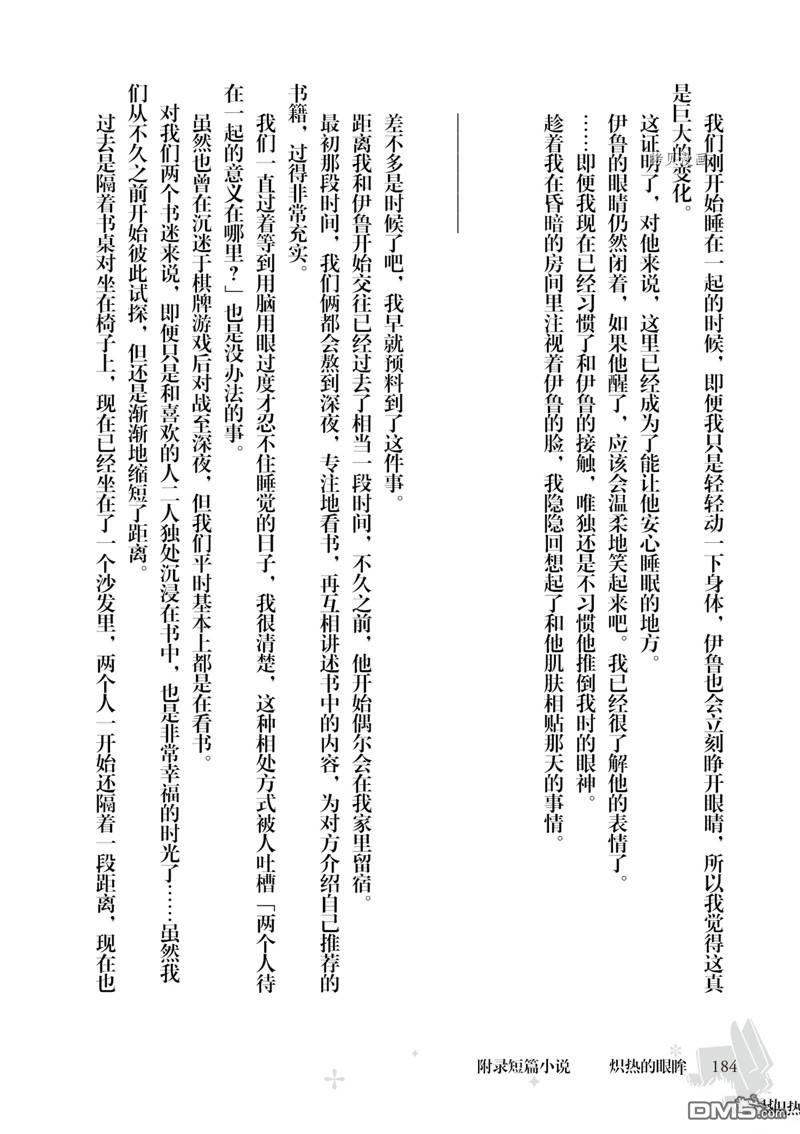 我们刚开始睡在一起的时候，即便我只是轻轻动一下身体，伊鲁也会立刻睁开眼睛，所以我觉得这真
是巨大的变化。
这证明了，对他来说，这里已经成为了能让他安心睡眠的地方。
伊鲁的眼睛仍然闭着，如果他醒了，应该会温柔地笑起来吧。我已经很了解他的表情了。
……即便我现在已经习惯了和伊鲁的接触，唯独还是不习惯他推倒我时的眼神。
趁着我在昏暗的房间里注视着伊鲁的脸，我隐隐回想起了和他肌肤相贴那天的事情。
差不多是时候了吧，我早就预料到了这件事。
距离我和伊鲁开始交往已经过去了相当一段时间，不久之前，他开始偶尔会在我家里留宿。
最初那段时间，我们俩都会熬到深夜，专注地看书，再互相讲述书中的内容，为对方介绍自己推荐的
书籍，过得非常充实。
我们一直过着等到用脑用眼过度才忍不住睡觉的日子，我很清楚，这种相处方式被人吐槽「两个人待
在一起的意义在哪里？」也是没办法的事。
虽然也曾在沉迷于棋牌游戏后对战至深夜，但我们平时基本上都是在看书。
对我们两个书迷来说，即便只是和喜欢的人二人独处沉浸在书中，也是非常幸福的时光了……虽然我
们从不久之前开始彼此试探，但还是渐渐地缩短了距离。
过去是隔着书桌对坐在椅子上，现在已经坐在了一个沙发里，两个人一开始还隔着一段距离，现在也
附录短篇小说 炽热的眼眸 184
DM5.com